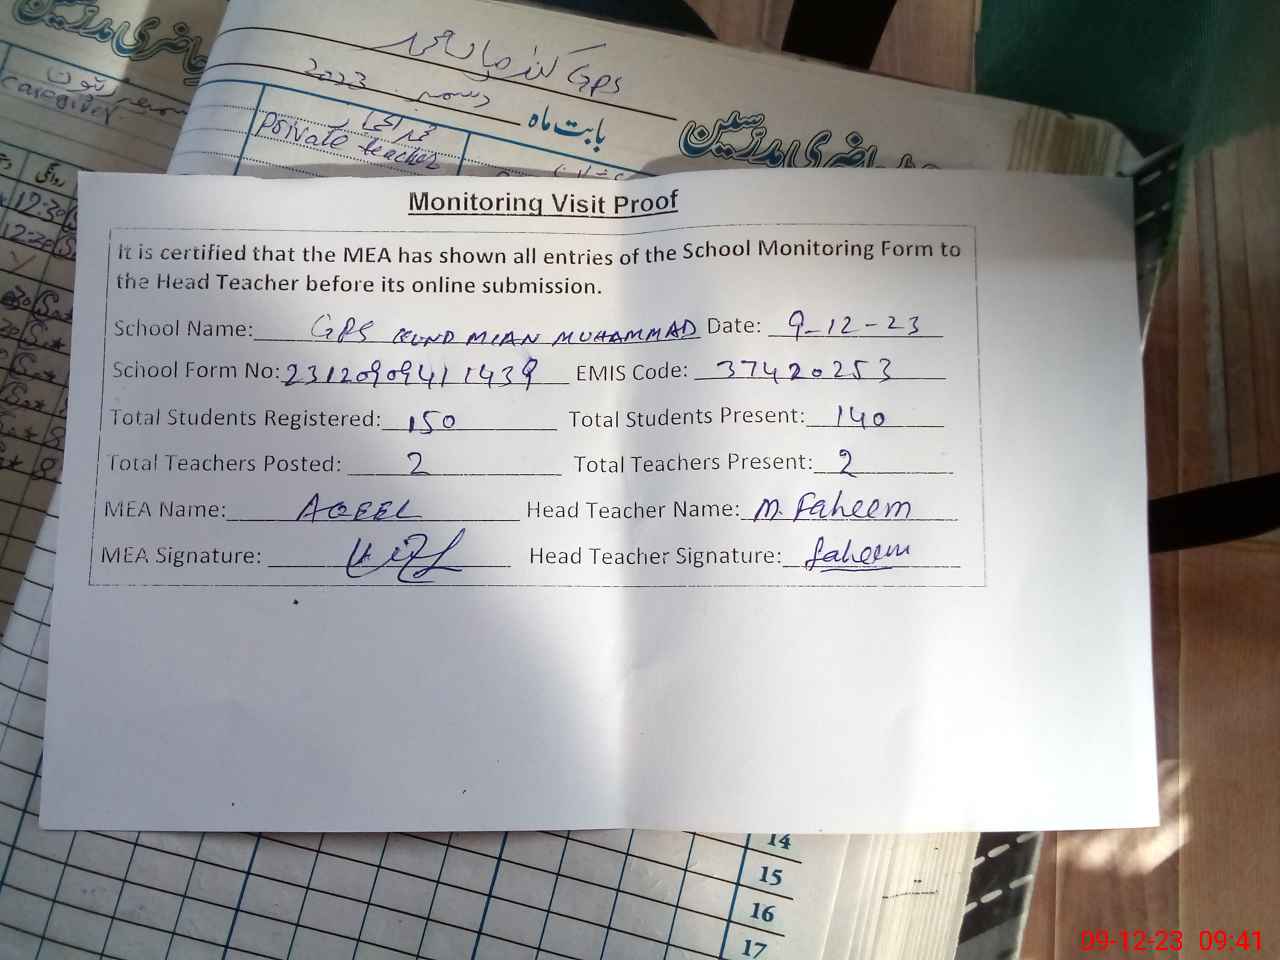 حاضری مدرسین
GPS کنڈ میاں محمد
بابت ماہ دسمبر 2023
حاضری مدرسین
Caregiver
Private teacher
روانگی
12:30
12:30
Monitoring Visit Proof
It is certified that the MEA has shown all entries of the School Monitoring Form to
the Head Teacher before its online submission.
School Name: GPS KUND MIAN MUHAMMAD Date: 9-12-23
School Form No: 23120909411439 EMIS Code: 37420253
Total Students Registered: 150 Total Students Present: 140
Total Teachers Posted: 2 Total Teachers Present: 2
MEA Name: AQEEL Head Teacher Name: M. Faheem
MEA Signature: Head Teacher Signature: faheem
14
15
16
17
09-12-23 09:41